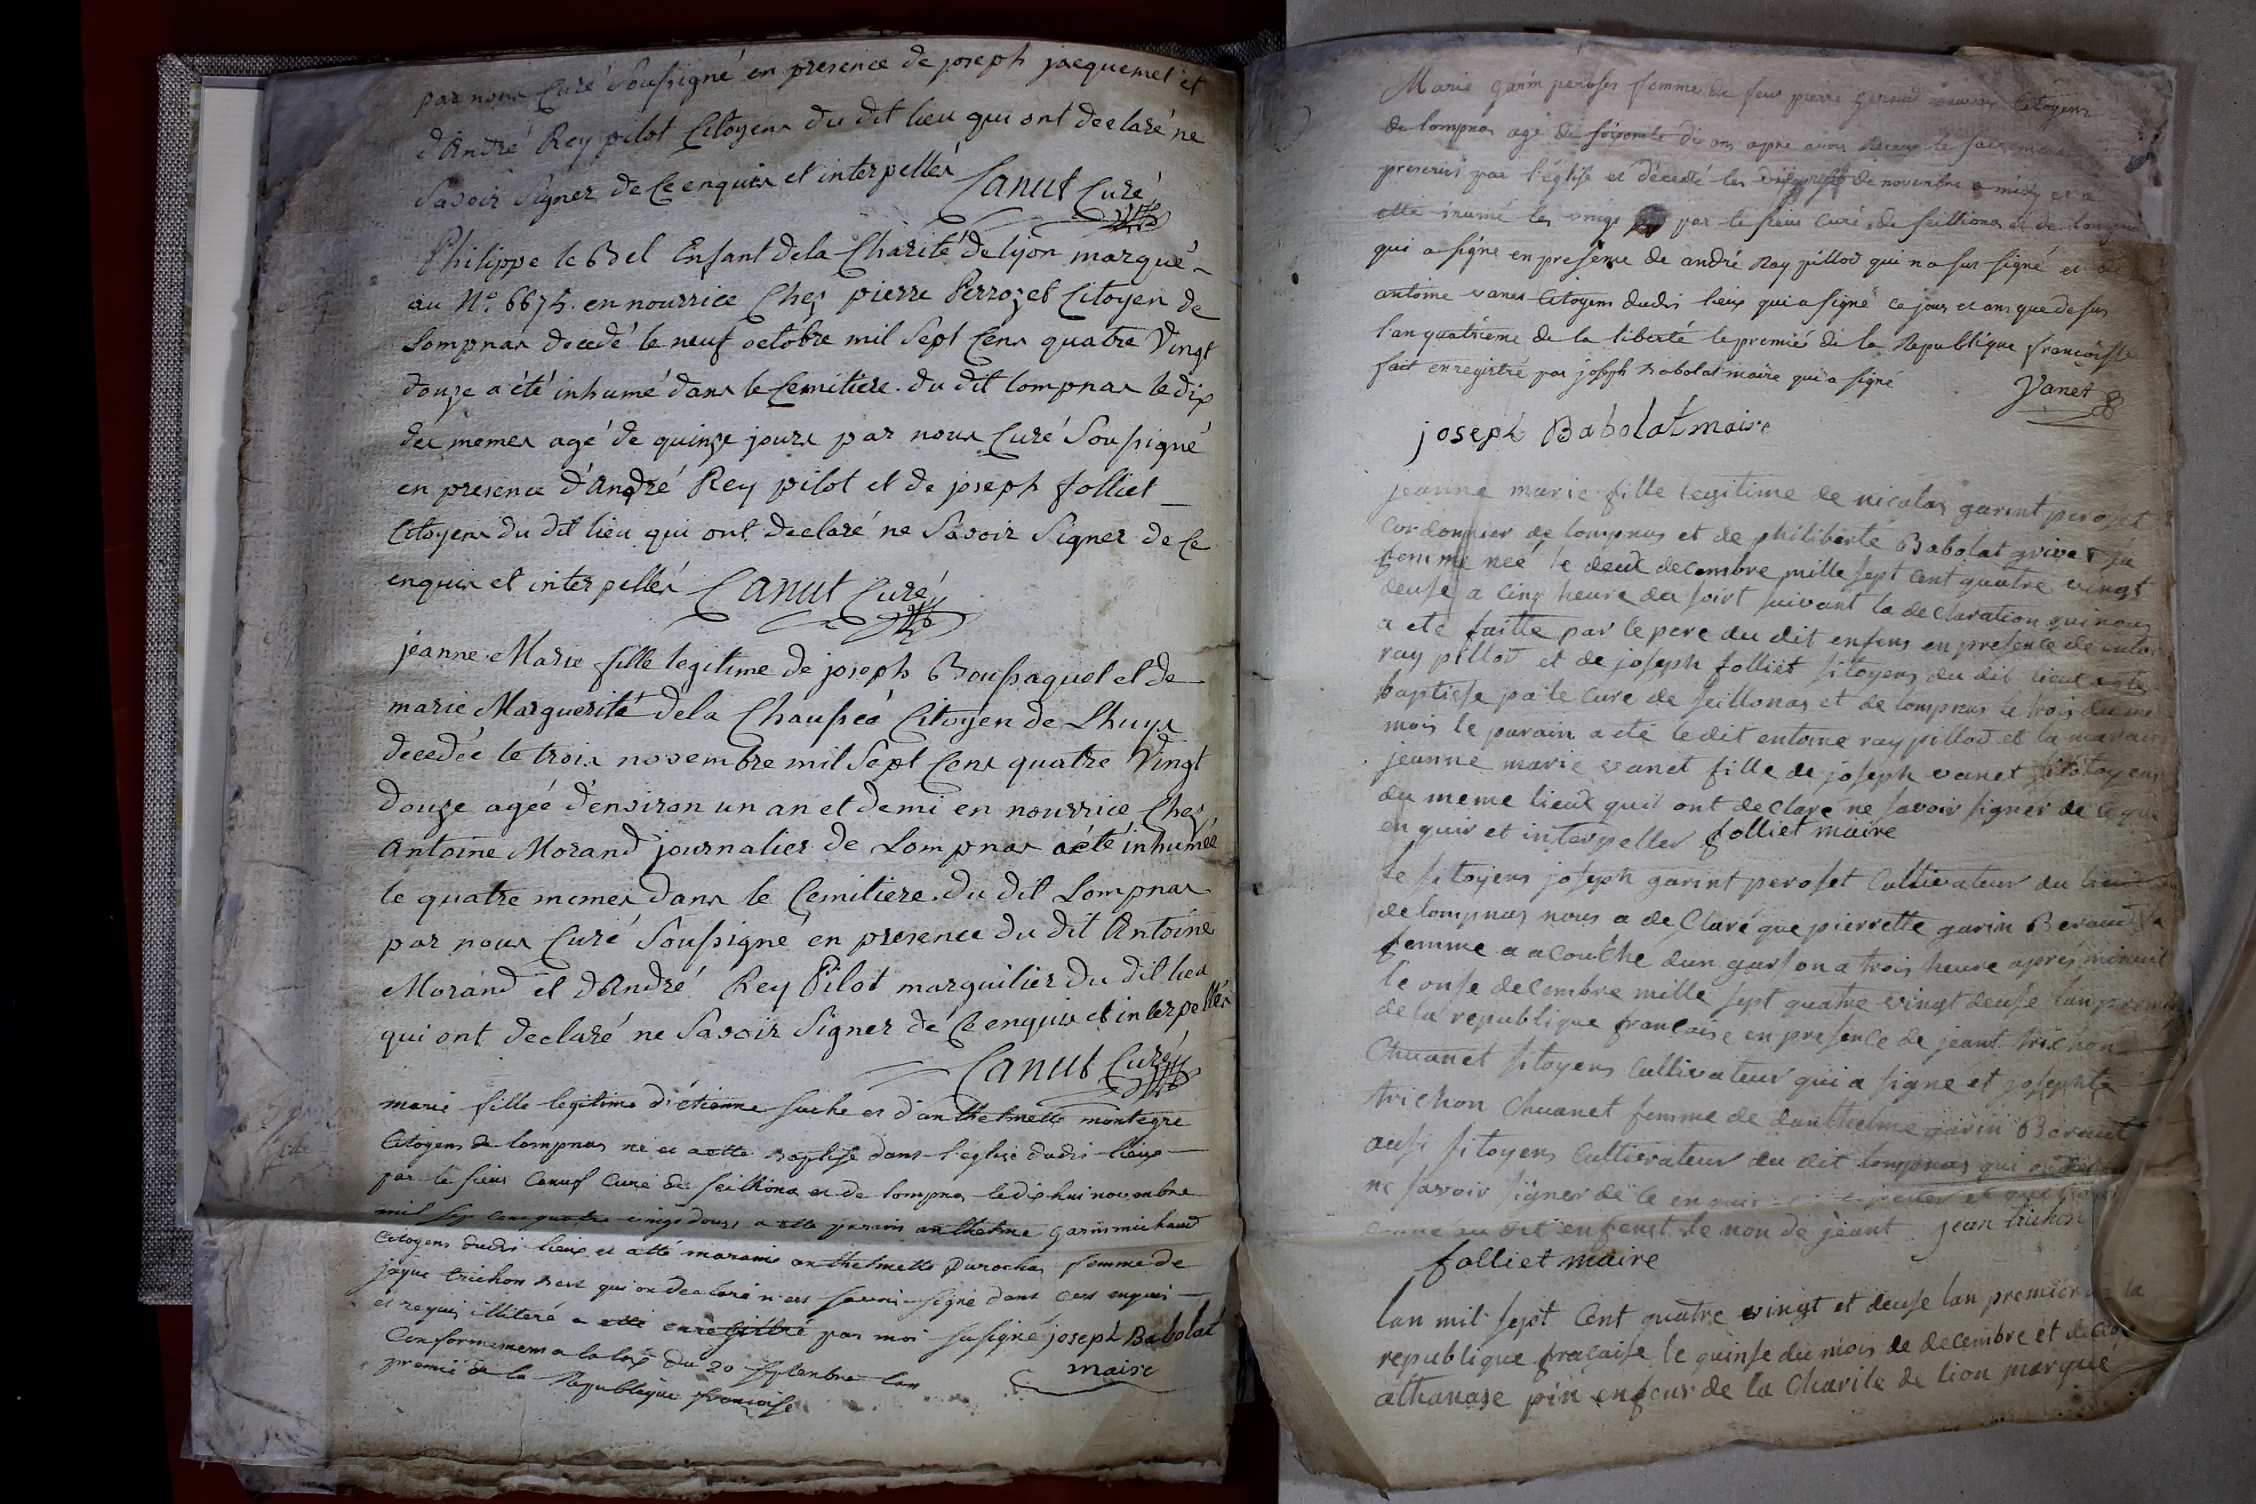 par nous Curé Soussigné en presence de joseph jacquemet et
d'André Rey pilot Citoyens du dit lieu qui ont declaré ne
Savoir Signer de Ce enquis et interpellés Canut Curé
Philippe le Bel Enfant de la Charité de lyon marqué
au N.º 6675. en nourrice Chez pierre Perrozet Citoyen de
Lompnas decedé le neuf octobre mil Sept Cens quatre Vingt
douze a été inhumé dans le Cemitiere du dit lompnas le dix
des memes agé de quinze jours par nous Curé Soussigné
en presence d'André Rey pilot et de joseph folliet
Citoyens du dit lieu qui ont declaré ne Savoir Signer de Ce
enquis et interpellés Canut Curé
jeanne Marie fille legitime de joseph Boussaquet et de
marie Marguerite de la Chaussée Citoyen de Lhuys
decedée le trois novembre mil Sept Cens quatre Vingt
douze agée d'environ un an et demi en nourrice Chez
Antoine Morand journalier de Lompnas a été inhumée
le quatre memes dans le Cemitiere du dit Lompnas
par nous Curé Soussigné en presence du dit Antoine
Morand et d'André Rey Pilot marguilier du dit lieu
qui ont declaré ne Savoir Signer de Ce enquis et interpellés
Canut Curé
marie fille legitime d'étienne suche et d'anthelmette montegre
Citoyens de lompnas né et a etté baptise dans l'église dudis lieux
par le sieur Canuf Curé de seilliona et de lompnas le dix hui novembre
mil sep cens quatre vings douse a etté parain anthelme garin michaud
Citoyens dudis lieux et a été maraine anthelmette Durochas femme de
jaque trichon qui on declaré n'ers savoir signé dans ces enquis
et requis illiteré a etté enregistré par moi susigné joseph Babolat
Conformemens a la loix du 20 septenbre lan maire
premié de la Republique françoise
Marie garin peroses femme de feus pierre Citoyens
de lompnas agé de soisente dix ans apre avoir Receux le
prescris par l'église et décédé les de novenbre a midy et a
etté inumé les vings par le sieur Curé de seilliona et de lompnas
qui a signé en présence de andré Ray pillod qui na sus signé et de
antoine vanes Citoyens dudis lieux qui a signé ce jour et ans que desus
l'an quatrième de la liberté le premiés de la Republique françoisse
fait enregistré par joseph Babolat maire qui a signé Vanet
joseph Babolat maire
jeanne marie fille legitime de nicolas garint peroset
cordonnier de lompnas et de philiberte Babolat grivet sa
femme neé le deux decembre mille sept cent quatre vingt
deuse a cinq heure du soirt suivant la declaration qui nous
a eté faitte par le pere du dit enfens en presence de
ray pillod et de joseph folliet sitoyens du dit lieux
baptise pa le cure de seillonas et de lompnas le trois du
mois le parain a eté le dit entoine ray pillod et la maraine
jeanne marie vanet fille de joseph vanet sitoyens
du meme lieux quil ont declare ne savoir signér de
en quis et interpeller folliet maire
le sitoyens joseph garint peroset Cultivateur du lieu
de lompnas nous a de Claré que pierrette garin Beraud sa
femme a acouthé dun garson a trois heure après minuit
le onse decembre mille sept quatre vingt deuse lan premier
de la republique francaise en presence de jeant trichon
Chuanet sitoyens Cultivateur qui a signe et josephte
trichon Chuanet femme de danthelme garin Beraud
ausi sitoyens Cultivateur du dit lompnas qui
ne savoir signer de ce enquis et
au dit enfenst le non de jeant jean trichon
folliet maire
lan mil sept Cent quatre vingt et deuse lan premier de la
republique fraçaise le quinse du mois de decembre et decédé
athanase pin enfens de la Charite de lion marqué